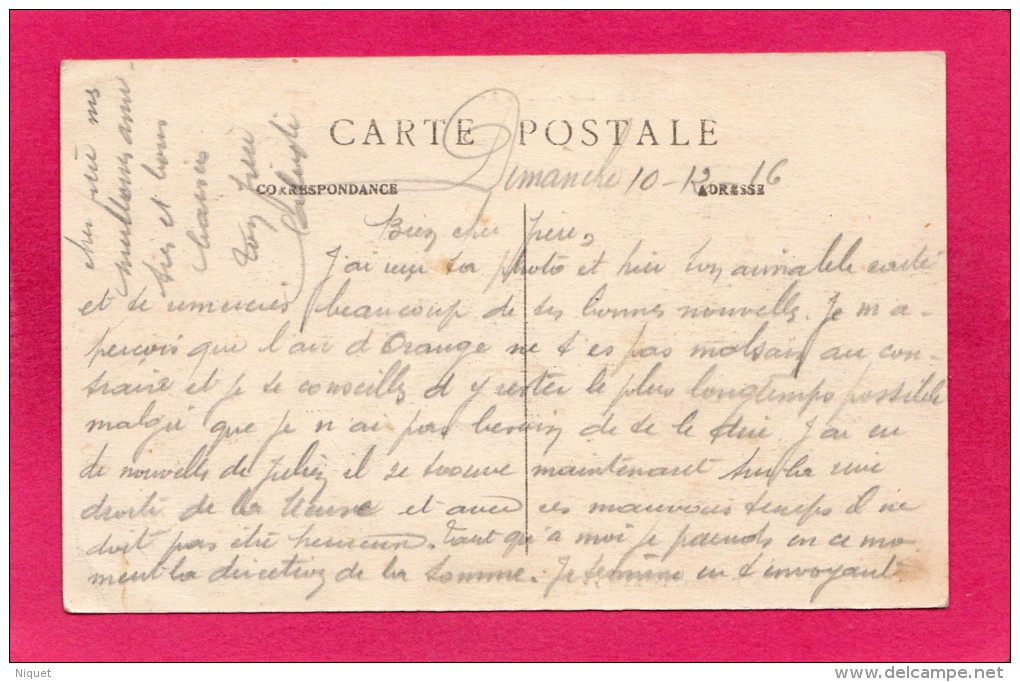 CARTE POSTALE
CORRESPONDANCE
ADRESSE
Dimanche 10-12-16
Bien cher frère,
J'ai reçu ta photo et hier ton aimable carte
et te remercie beaucoup de tes bonnes nouvelles. Je m a-
perçois que l'air d Orange ne t es pas malsain au con-
traire et je te conseille d y rester le plus longtemps possible
malgré que je n'ai pas besoin de te le dire. J'ai eu
de nouvelles de Julien il se trouve maintenant sur la rive
droite de la Meuse et avec ces mauvais temps il ne
doit pas être heureux. Tant qu'à moi je prends en ce mo-
ment la direction de la Somme. Je termine en t'envoyant
cher frère mes
meilleures ami-
tiés et bons
baisers
ton frère
Niquet
delcampe.net